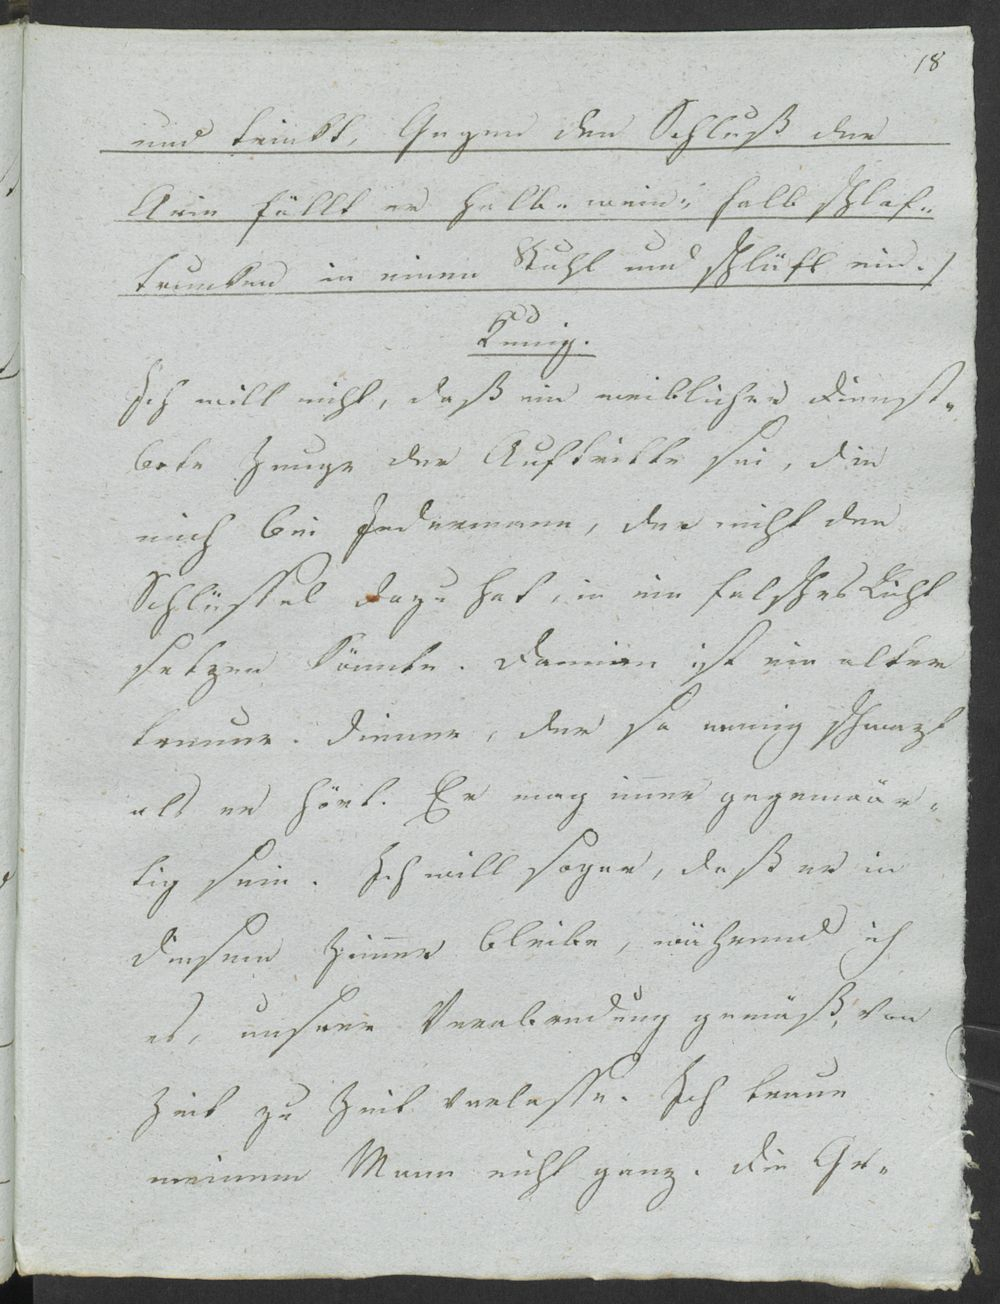 18
und trinkt. Gegen den Schluß der
Arie fällt er halb-wein- halb schlaf-
trunken in einen Stuhl und schläft ein.)
Kunig.
Ich will nicht, daß ein weiblicher Dienst-
bote Zeuge der Auftritte sei, die
mich bei Jedermann, der nicht den
Schlüssel dazu hat, in ein falsches Licht
setzen könnte. Damian ist ein alter
treuer Diener, der so wenig schwazt
als er hört. Er mag im̅er gegenwär-
tig sein. Ich will sogar, daß er in
diesem Zim̅er bleibe, während ich
es, unsrer Verabredung gemäß, von
Zeit zu Zeit verlasse. Ich traue
meinem Mann nicht ganz. Die Ge-